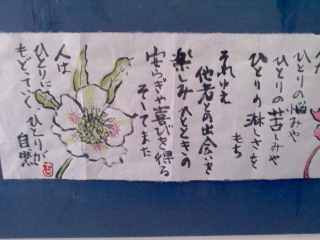 人は
ひとりの悩みや
ひとりの苦しみや
ひとりの淋しさを
もち
それゆえ
他者との出会いを
楽しみひとときの
安らぎや喜びを得る
そしてまた
人は
ひとりに
もどっていく
ひとりが
自然